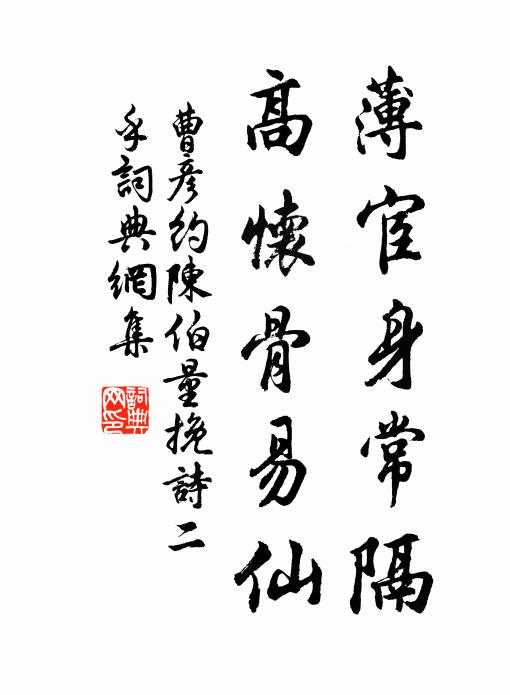 薄宦身常隔
高懷骨易仙
曹彥約陳伯量挽詩二
手詞典網集
詞典
网印